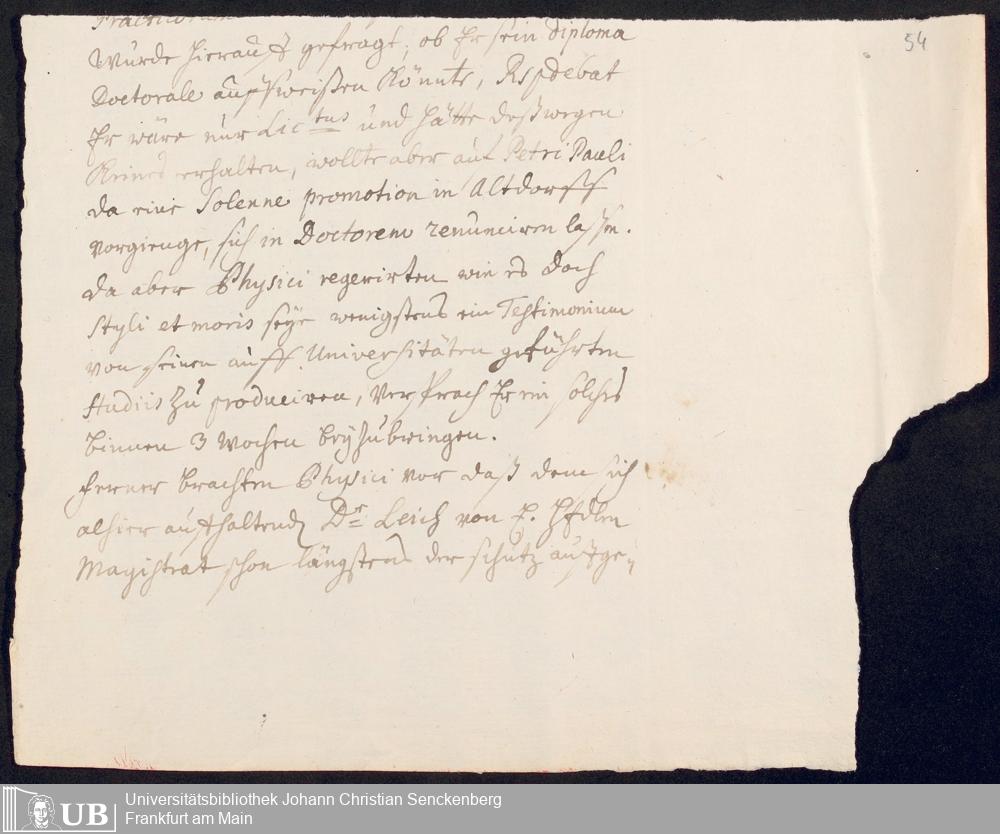 Practicorum
54
wurde hierauff gefragt, ob Er sein Diploma
Doctorale auffweißen könnte, Rspdebat
Er wäre nur Lic tus und hätte deßwegen
Keines erhalten, wollte aber auf Petri Pauli
da eine Solenne promotion in Altdorff
vorgienge, sich in Doctorem renunciren lassen.
da aber Physici regerirten wie es doch
styli et moris seye wenigstens ein Testimonium
von seinen auff Universitäten geführten
studiis zu produciren, versprach Er ein solches
binnen 3 Wochen beyzubringen.
ferner brachten Physici vor daß dem sich
alhier auffhaltend Dr Leich von E. HEdlen
Magistrat schon längstens der schutz auffge„
UB
Universitätsbibliothek Johann Christian Senckenberg
Frankfurt am Main